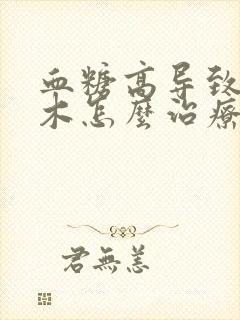 血糖高导致
木怎麼治療
君無恙